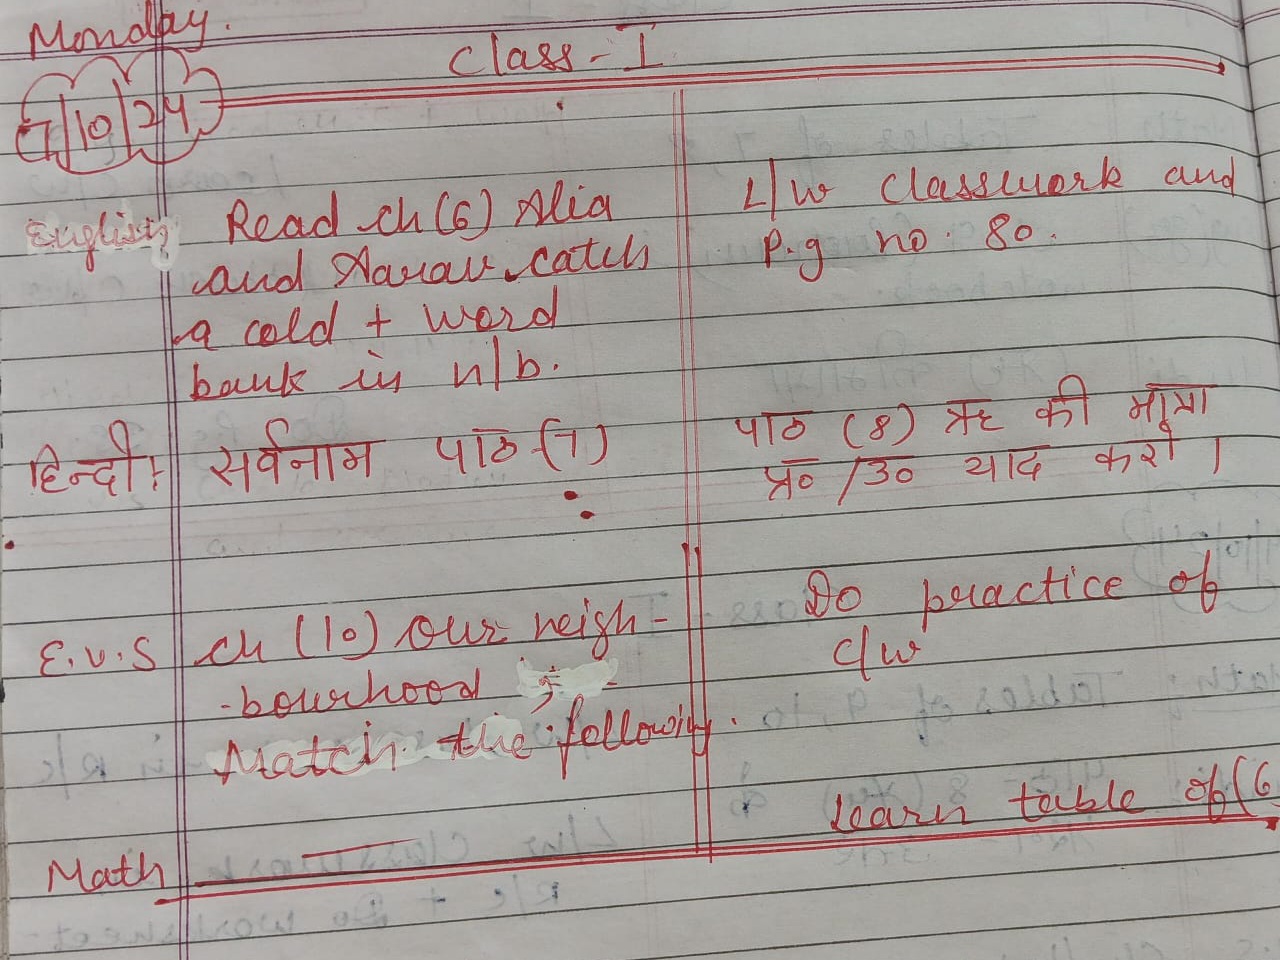 Monday.
Class - I
7/10/24
English: Read ch (6) Alia
and Aarav catch
a cold + word
bank in n/b.
L/w Classwork and
P.g no. 80.
हिन्दी: सर्वनाम पाठ-(7)
पाठ (8) ऋ की मात्रा
प्र० /उ० याद करो।
E.V.S ch (10) Our neigh-
-bourhood ;-
Match the following.
Do practice of
C/w
Math
Learn table of (6